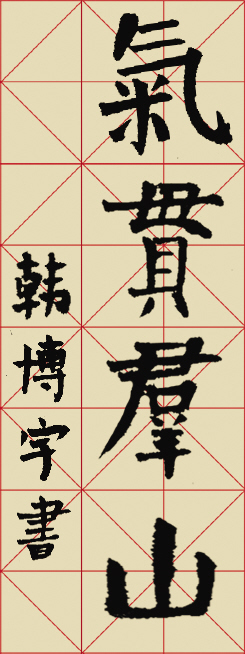 氣貫羣山
韩博字書